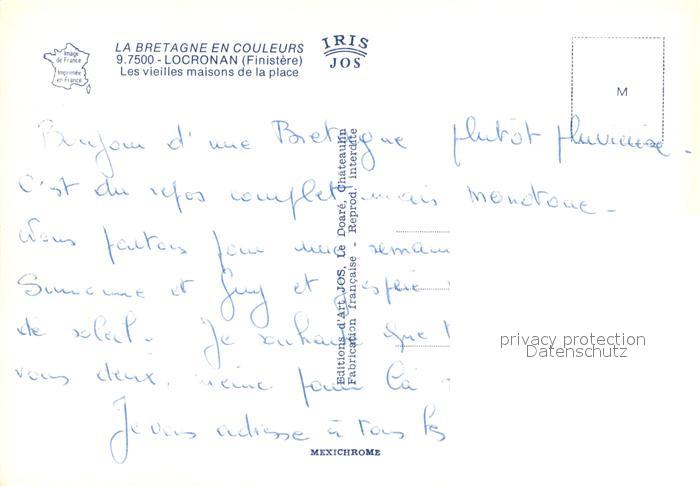 Image
de France
Imprimée
en France
LA BRETAGNE EN COULEURS
9.7500 - LOCRONAN (Finistère)
Les vieilles maisons de la place
IRIS
JOS
M
Bonjour d'une Bretagne plutôt pluvieuse.
C'est du repos complet mais monotone -
Nous partons pour une semain
Suzanne et Guy et j'espère
de soleil. Je souhaite que
vous deux, même pour la
Je vous adresse à tous les
Editions d'Art JOS, Le Doaré, Châteaulin
Fabrication française - Reprod. interdite
MEXICHROME
privacy protection
Datenschutz